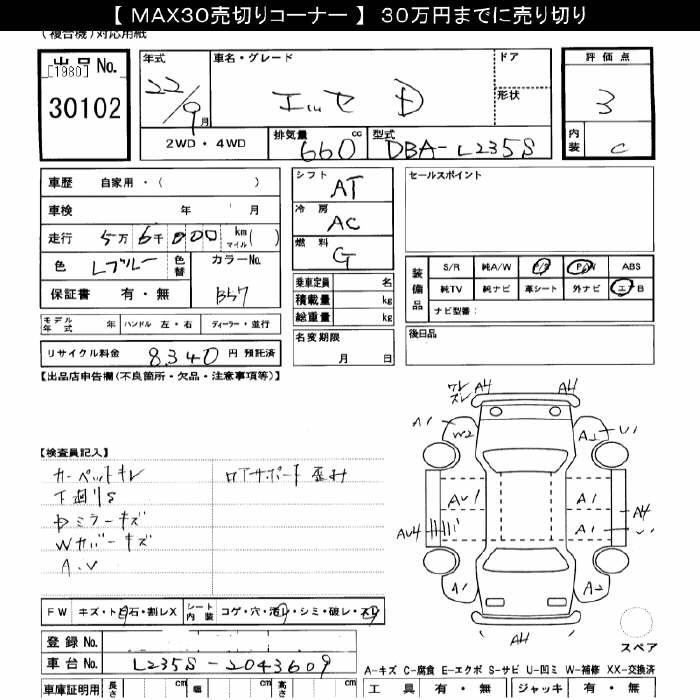 【 MAX30売切りコーナー 】 30万円までに売り切り
(複合機)対応用紙
出品 No.
[1980]
30102
年式 22/9月
車名・グレード エッセ D
ドア
形状
評価点 3
内装 C
2WD・4WD
排気量 660 cc
型式 DBA-L235S
車歴 自家用・( )
車検 年 月
走行 5万6千000 km マイル( )
色 Lブルー 色替
カラーNo. B57
保証書 有・無
モデル年式 年 ハンドル 左・右 ディーラー・並行
リサイクル料金 8340 円 預託済
シフト AT
冷房 AC
燃料 G
乗車定員 名
積載量 kg
総重量 kg
名変期限
月 日
セールスポイント
装備品
S/R 純A/W P/S P/W ABS
純TV 純ナビ 革シート 外ナビ エアB
ナビ型番:
後日品
【出品店申告欄(不良箇所・欠品・注意事項等)】
【検査員記入】
カーペットキレ
下廻りS
ミラーキズ
Wカバーキズ
A.U
ロアサポート 歪み
FW キズ・ト石・割レX
シート内装 コゲ・穴・汚レ・シミ・破レ・スレ
登録 No.
車台 No. L235S-2043609
車庫証明用 長さ cm 幅 cm 高さ cm
ワレ
ズレ
AH AH
A1 W2 A2 U1
AU1 A1
AU4 A1 U1 AH
A1 A2
AH
スペア
A-キズ C-腐食 E-エクボ S-サビ U-凹ミ W-補修 XX-交換済
工具 有・無 ジャッキ 有・無